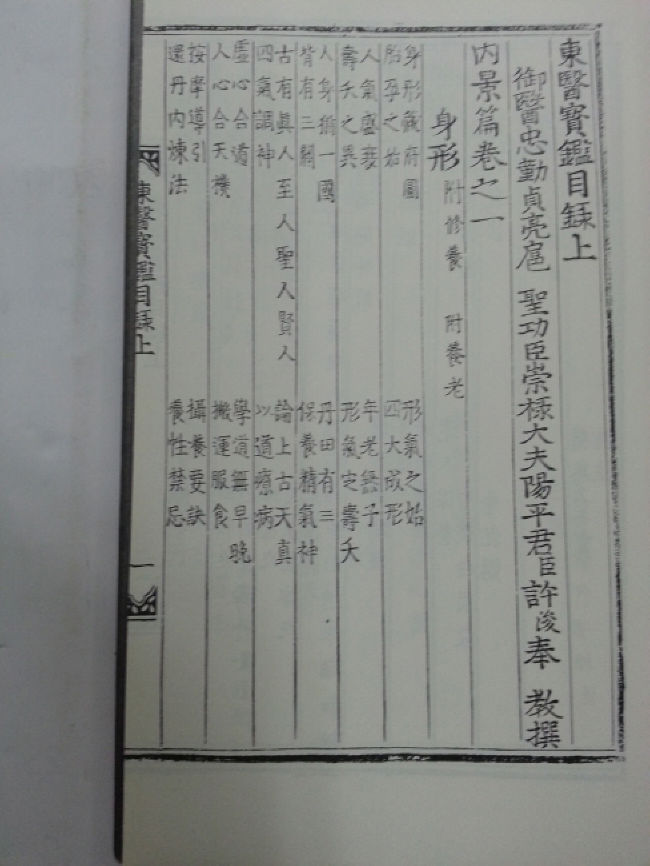 東醫寶鑑目錄上
御醫忠勤貞亮扈 聖功臣崇祿大夫陽平君臣許浚奉 教撰
內景篇卷之一
身形 附修養 附養老
身形藏府圖 形氣之始
胎孕之始 四大成形
人氣盛衰 年老無子
壽夭之異 形氣定壽夭
人身猶一國 丹田有三
背有三關 保養精氣神
古有眞人至人聖人賢人 論上古天真
四氣調神 以道療病
虛心合道 學道無早晚
人心合天機 搬運服食
按摩導引 攝養要訣
還丹內煉法 養性禁忌
東醫寶鑑目錄上 一